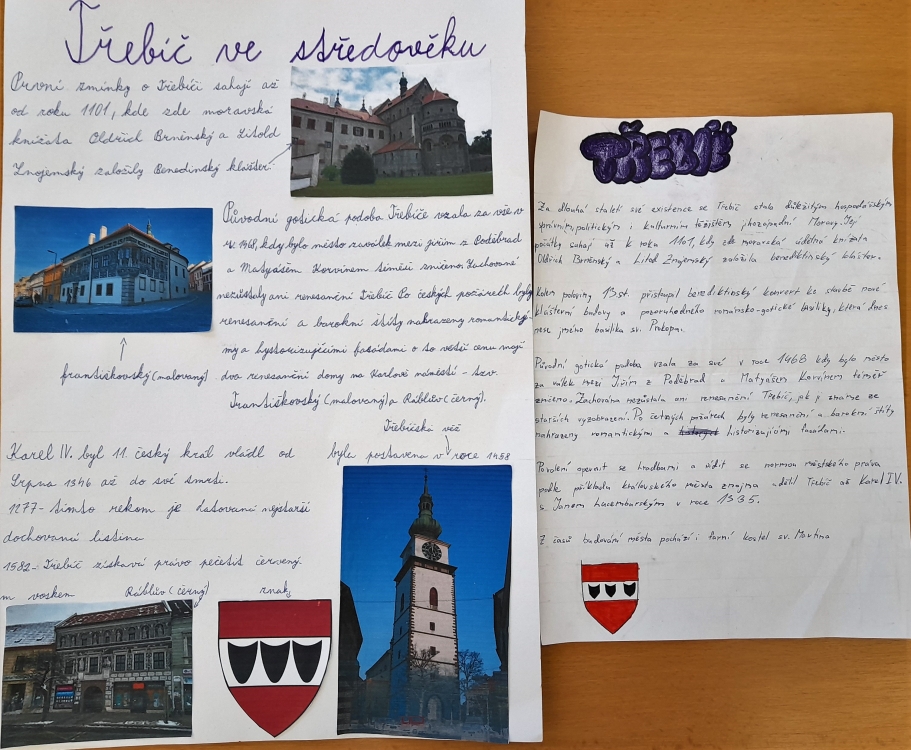 Třebíč ve středověku
První zmínky o Třebíči sahají až
od roku 1101, kde zde moravská
knížata Oldřich Brněnský a Litold
Znojemský založily Benedinský klášter
Původní gotická podoba Třebíče vzala za vše v
r. 1468, kdy bylo město zaválek mezi jiřím z Poděbrad
a Matyášem Korvínem téměř zničeno. Zachované
nezůstaly ani renesanční Třebíč Po českých požárech byly
renesanční a barokní štíty nahrazeny romantický-
my a hystorizujícími fasádami o to větší cenu mají
dva renesanční domy na Karlově náměstí - tzv.
Františkovský (malovaný) a Ráblův (černý).
františkovský (malovaný)
Třebíčská věž
byla postavena v roce 1458
Karel IV. byl 11. český král vládl od
Srpna 1346 až do své smrti.
1277- tímto rokem je datovaná nejstarší
dochovaná listina
1582- Třebíč získává právo pečetit červený
m voskem
Ráblův (černý)
znak
TŘEBÍČ
Za dlouhá staletí své existence se Třebíč stalo důležitým hospodářským
správním, politickým i kulturním těžištěm jihozápadní Moravy. Její
počátky sahají až k roku 1101, kdy zde moravská údělná knížata
Oldřich Brněnský a Litold Znojemský založila benediktinský klášter.
Kolem poloviny 13 st. přistoupil benediktinský konvent ke stavbě nové
klášterní budovy a pozoruhodného románsko-gotické basiliky, která dnes
nese jméno basilika sv. Prokopa.
Původní gotická podoba vzala za své v roce 1468 kdy bylo město
za válek mezi Jiřím z Poděbrad a Matyášem Korvínem téměř
zničeno. Zachována nezůstala ani renesanční Třebíč, jak ji známe ze
starších vyobrazení. Po četných požárech byly renesanční a barokní štíty
nahrazeny romantickými a historizujícími fasádami.
Povolení opevnit se hradbami a řídit se normou městského práva
podle příkladu královského města znojma udělil Třebíč až Karel IV.
s Janem Lucemburským v roce 1335.
Z časů budování města pochází i farní kostel sv. Martina